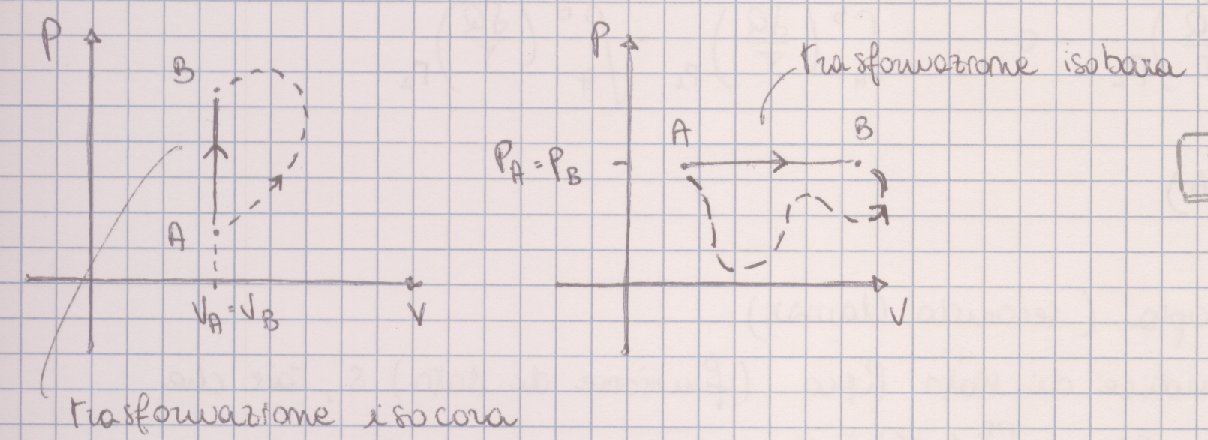 P
B
A
V_A = V_B
V
trasformazione isocora
P
trasformazione isobara
A
B
P_A = P_B
V